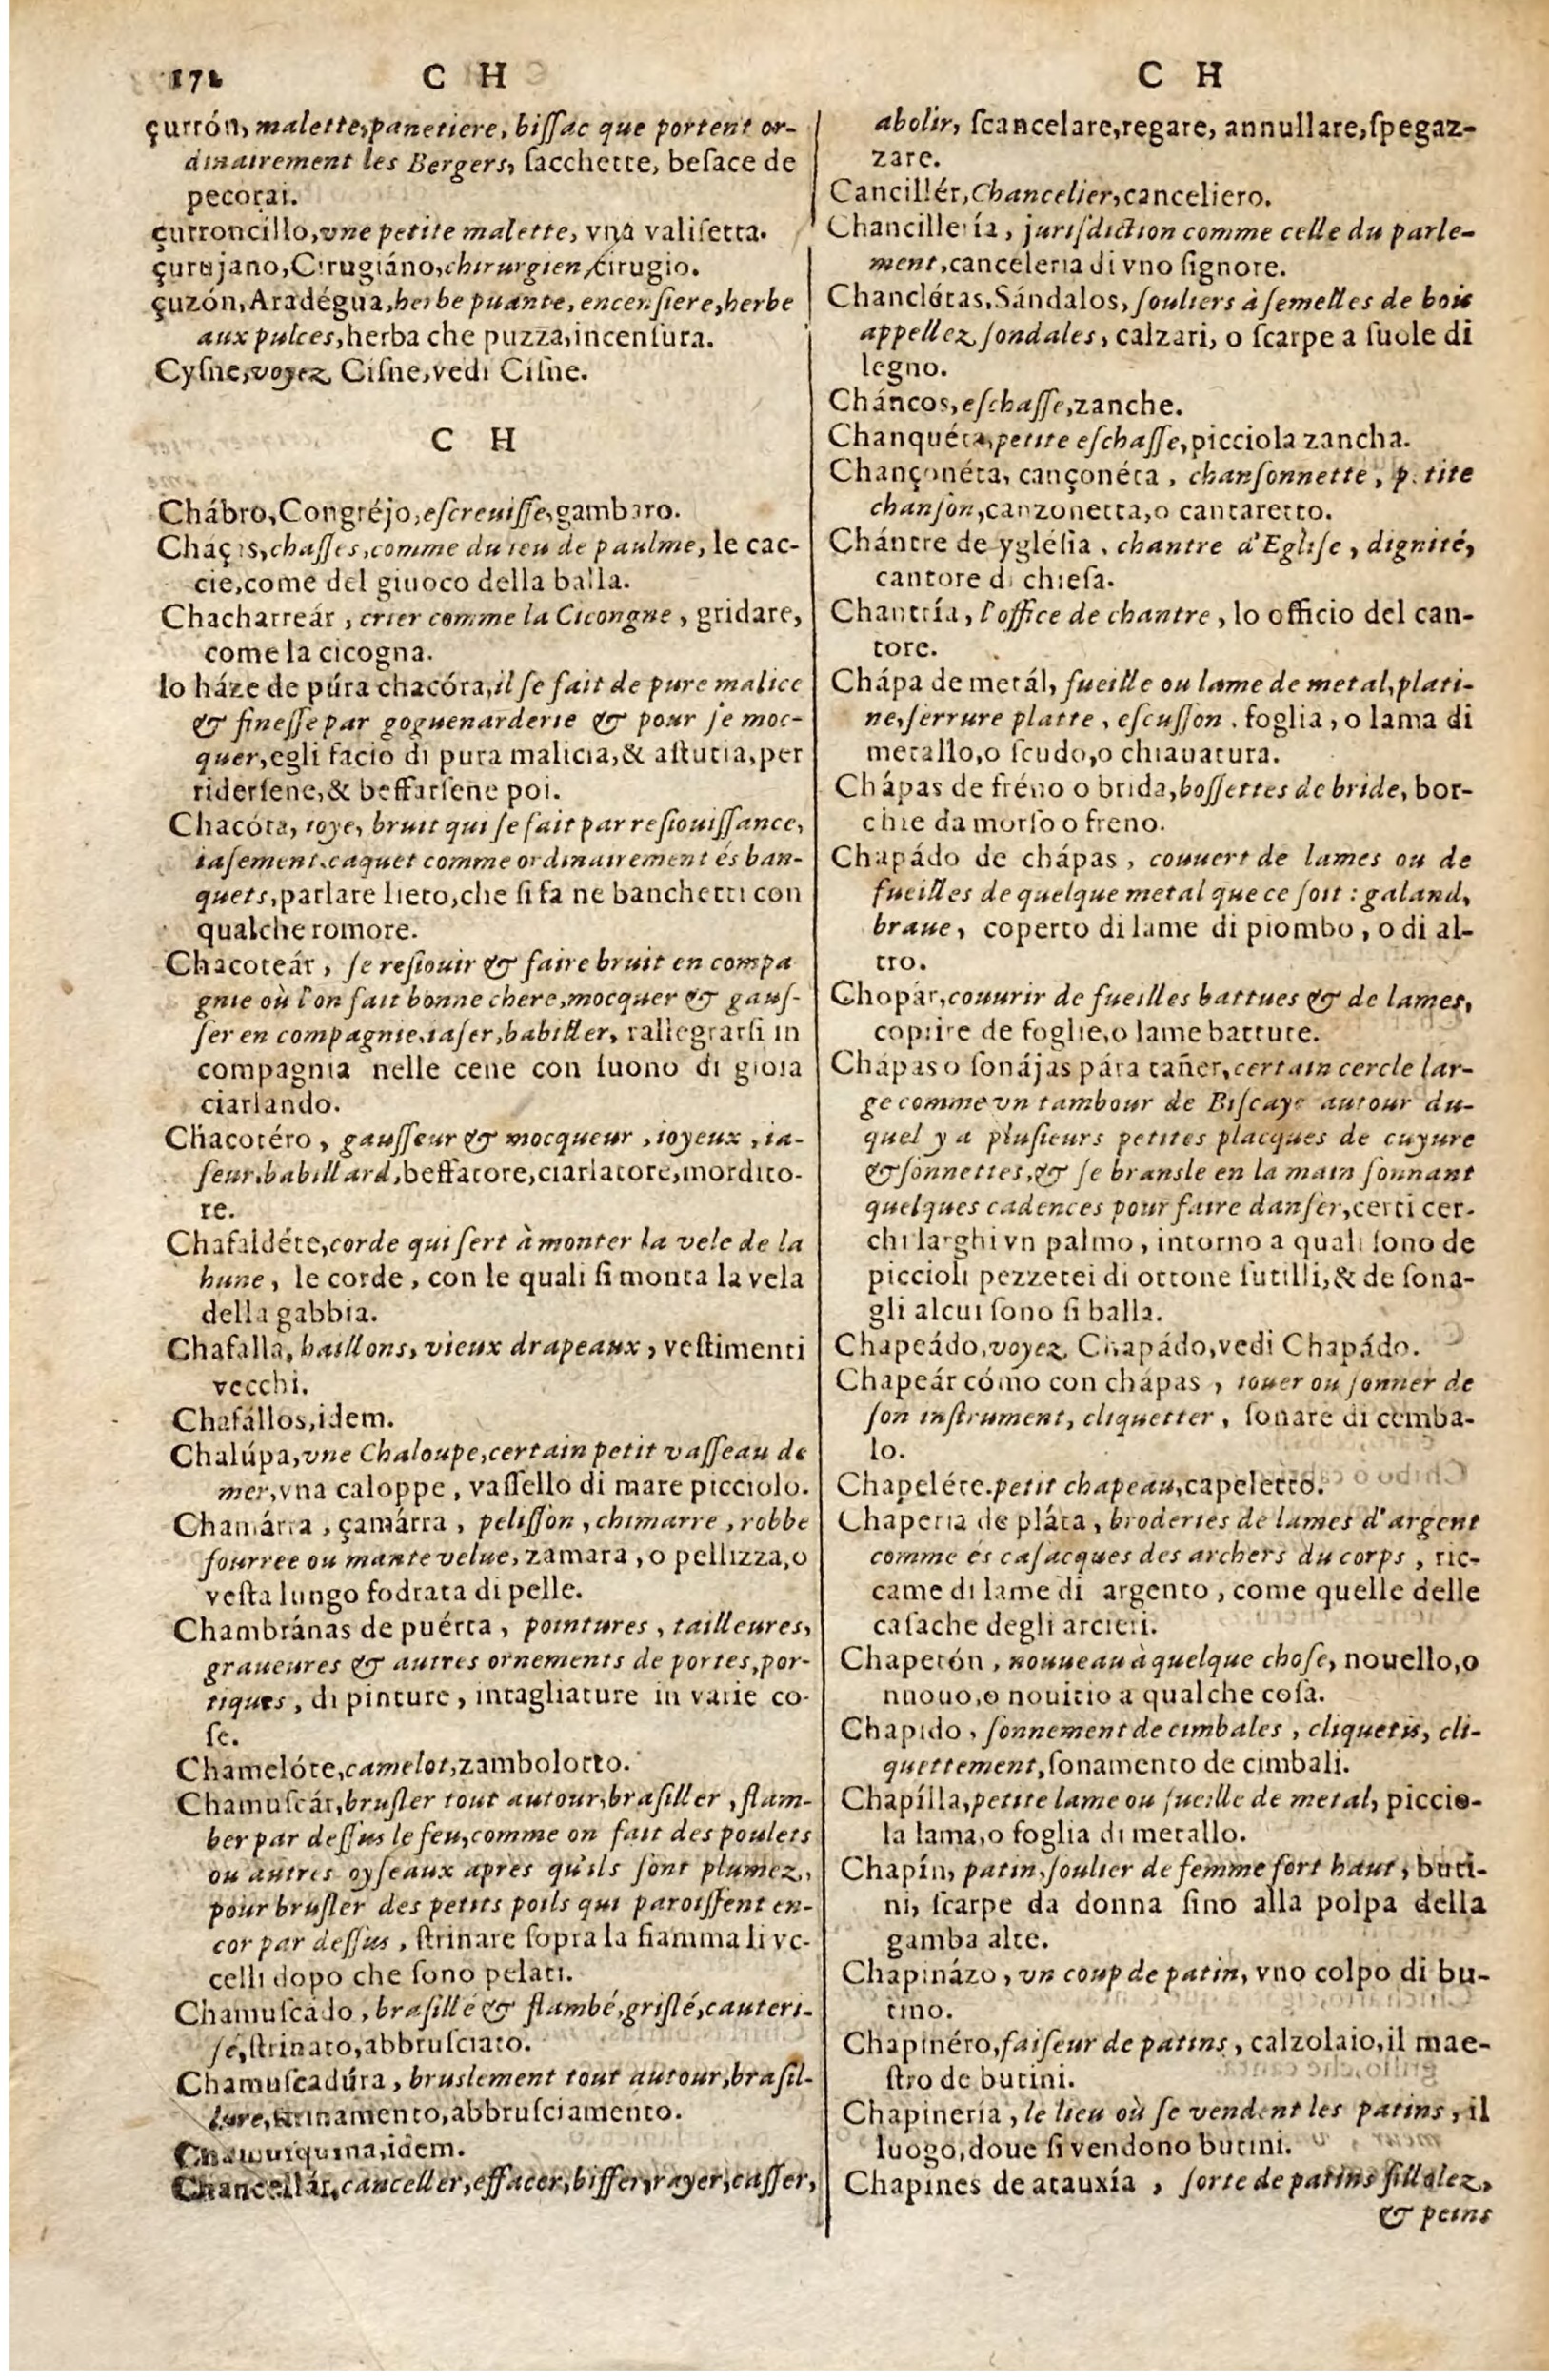 172 C H
çurrón, malette, panetiere, biſſac que portent or-
dinairement les Bergers, ſacchette, beſace de
pecorai.
çurroncillo, vne petite malette, vna valiſetta.
çurujano, Cirugiáno, chirurgien, cirugio.
çuzón, Aradégua, herbe puante, encenſiere, herbe
aux pulces, herba che puzza, incenſura.
Cyſne, voyez Ciſne, vedi Ciſne.
C H
Chábro, Congréjo, eſcreuiſſe, gambaro.
Chaças, chaſſes, comme du ieu de paulme, le cac-
cie, come del giuoco della balla.
Chacharreár, crier comme la Cicongne, gridare,
come la cicogna.
lo háze de púra chacóra, il ſe fait de pure malice
& fineſſe par goguenarderie & pour ſe moc-
quer, egli facio di pura malicia, & aſtutia, per
riderſene, & beffarſene poi.
Chacóta, ioye, bruit qui ſe fait par reſiouiſſance,
iaſement, caquet comme ordinairement és ban-
quets, parlare lieto, che ſi fa ne banchetti con
qualche romore.
Chacoteár, ſe reſiouir & faire bruit en compa
gnie où l'on fait bonne chere, mocquer & gauſ-
ſer en compagnie, iaſer, babiller, rallegrarſi in
compagnia nelle cene con ſuono di gioia
ciarlando.
Chacotéro, gauſſeur & mocqueur, ioyeux, ia-
ſeur, babillard, beffatore, ciarlatore, mordito-
re.
Chafaldéte, corde qui ſert à monter la vele de la
hune, le corde, con le quali ſi monta la vela
della gabbia.
Chafalla, haillons, vieux drapeaux, veſtimenti
vecchi.
Chafállos, idem.
Chalúpa, vne Chaloupe, certain petit vaſſeau de
mer, vna caloppe, vaſſello di mare picciolo.
Chamárra, çamárra, peliſſon, chimarre, robbe
fourree ou mante velue, zamara, o pellizza, o
veſta lungo fodrata di pelle.
Chambránas de puérta, pointures, tailleures,
graueures & autres ornements de portes, por-
tiques, di pinture, intagliature in varie co-
ſe.
Chamelóte, camelot, zambolotto.
Chamuſcár, bruſler tout autour, braſiller, flam-
ber par deſſus le feu, comme on fait des poulets
ou autres oyſeaux apres qu'ils ſont plumez,
pour bruſler des petits poils qui paroiſſent en-
cor par deſſus, ſtrinare ſopra la fiamma li vc-
celli dopo che ſono pelati.
Chamuſcádo, braſillé & flambé, griſlé, cauteri-
ſé, ſtrinato, abbruſciato.
Chamuſcadúra, bruslement tout autour, braſil-
lure, ſtrinamento, abbruſciamento.
Chamuſquina, idem.
Chancellár, canceller, effacer, biffer, rayer, caſſer,
C H
abolir, ſcancelare, regare, annullare, ſpegaz-
zare.
Cancillér, Chancelier, canceliero.
Chancillería, juriſdiction comme celle du parle-
ment, canceleria di vno ſignore.
Chanclétas, Sándalos, ſouliers à ſemelles de bois
appellez ſondales, calzari, o ſcarpe a ſuole di
legno.
Cháncos, eſchaſſe, zanche.
Chanquéta, petite eſchaſſe, picciola zancha.
Chançonéta, cançonéta, chanſonnette, petite
chanſon, canzonetta, o cantaretto.
Chántre de ygléſia, chantre d'Egliſe, dignité,
cantore di chieſa.
Chantría, l'office de chantre, lo officio del can-
tore.
Chápa de metál, fueille ou lame de metal, plati-
ne, ſerrure platte, eſcuſſon, foglia, o lama di
metallo, o ſcudo, o chiauatura.
Chápas de fréno o brida, boſſettes de bride, bor-
chie da morſo o freno.
Chapádo de chápas, couuert de lames ou de
fueilles de quelque metal que ce ſoit: galand,
braue, coperto di lame di piombo, o di al-
tro.
Chopár, couurir de fueilles battues & de lames,
coprire de foglie, o lame battute.
Chápas o ſonájas pára tañer, certain cercle lar-
ge comme vn tambour de Biſcaye autour du-
quel y a pluſieurs petites placques de cuyure
& ſonnettes, & ſe bransle en la main ſonnant
quelques cadences pour faire danſer, certi cer-
chi larghi vn palmo, intorno a quali ſono de
piccioli pezzetei di ottone ſutilli, & de ſona-
gli alcui ſono ſi balla.
Chapeádo, voyez Chapádo, vedi Chapádo.
Chapeár cómo con chápas, iouer ou ſonner de
ſon inſtrument, cliquetter, ſonare di cemba-
lo.
Chapeléte. petit chapeau, capeletto.
Chaperia de pláta, broderies de lames d'argent
comme és caſacques des archers du corps, ric-
came di lame di argento, come quelle delle
caſache degli arcieri.
Chapetón, nouueau à quelque choſe, nouello, o
nuouo, o nouitio a qualche coſa.
Chapido, ſonnement de cimbales, cliquetis, cli-
quettement, ſonamento de cimbali.
Chapílla, petite lame ou fueille de metal, piccio-
la lama, o foglia di metallo.
Chapín, patin, ſoulier de femme fort haut, buti-
ni, ſcarpe da donna ſino alla polpa della
gamba alte.
Chapinázo, vn coup de patin, vno colpo di bu-
tino.
Chapinéro, faiſeur de patins, calzolaio, il mae-
ſtro de butini.
Chapinería, le lieu où ſe vendent les patins, il
luogo, doue ſi vendono butini.
Chapines de atauxía, ſorte de patins ſillolez,
& peins